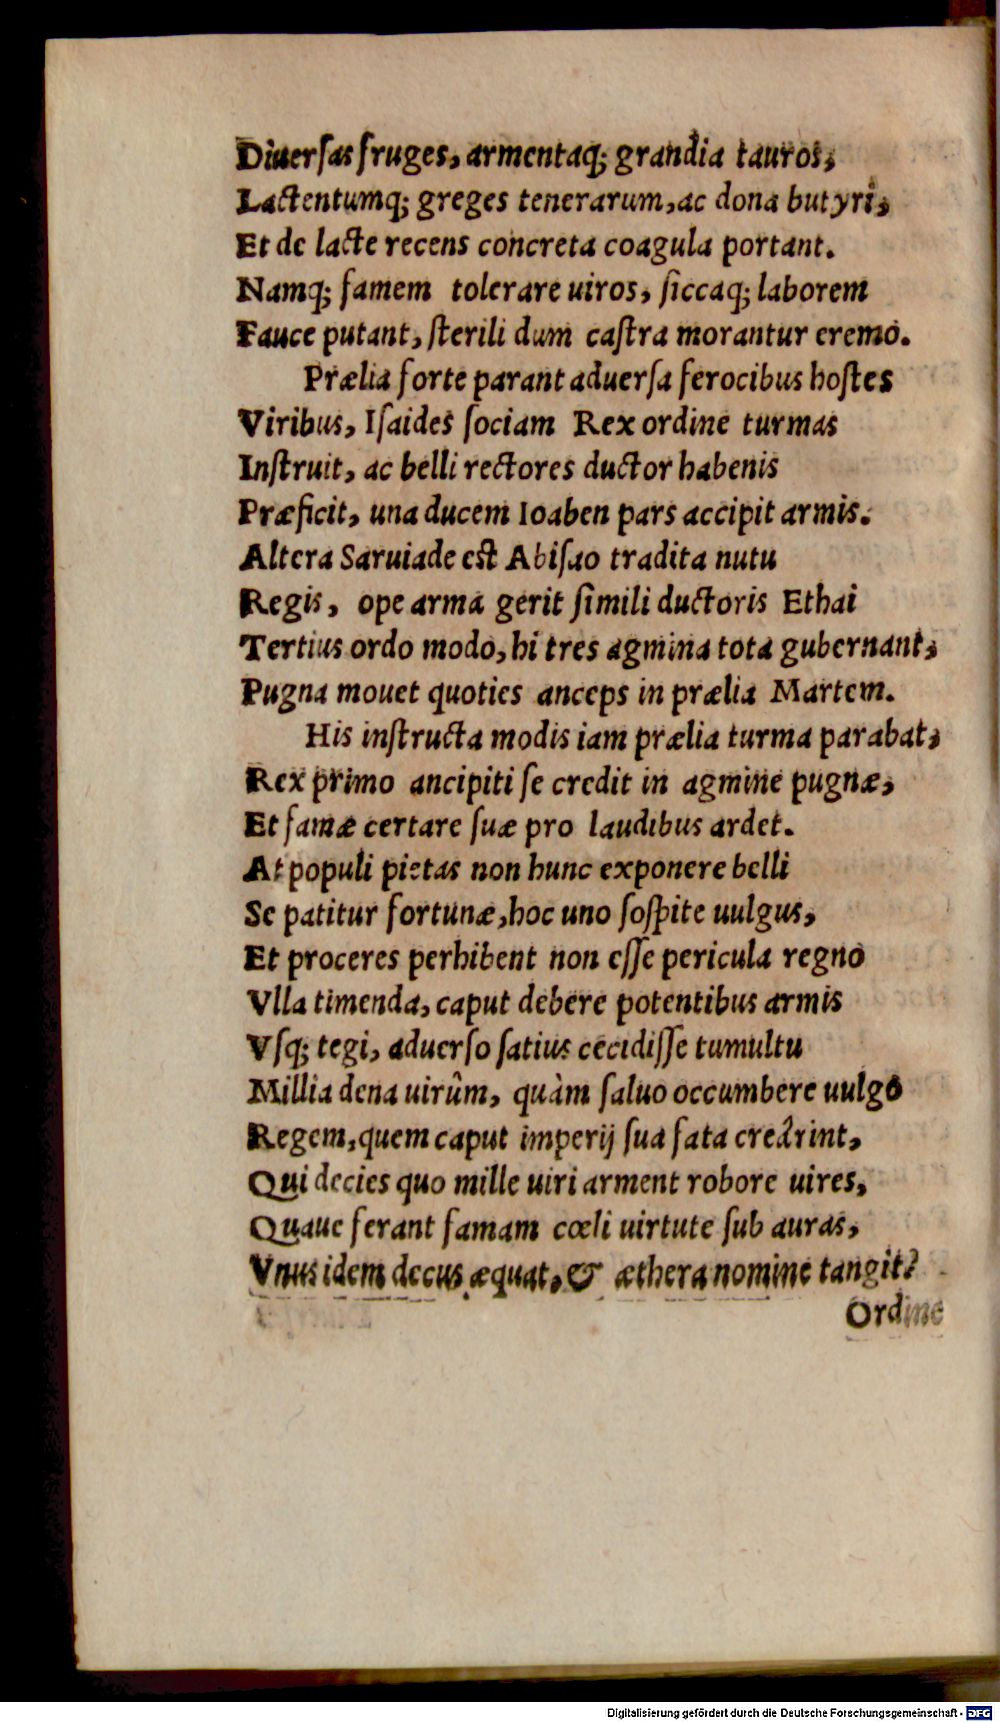 Diuersas fruges, armentaq; grandia tauros,
Lactentumq; greges tenerarum, ac dona butyri,
Et de lacte recens concreta coagula portant.
Namq; famem tolerare uiros, siccaq; laborem
Fauce putant, sterili dum castra morantur eremo.
Prælia forte parant aduersa ferocibus hostes
Viribus, Isaides sociam Rex ordine turmas
Instruit, ac belli rectores ductor habenis
Præficit, una ducem Ioaben pars accipit armis.
Altera Saruiade est Abisao tradita nutu
Regis, ope arma gerit simili ductoris Ethai
Tertius ordo modo, hi tres agmina tota gubernant,
Pugna mouet quoties anceps in prælia Martem.
His instructa modis iam prælia turma parabat,
Rex primo ancipiti se credit in agmine pugnæ,
Et famæ certare suæ pro laudibus ardet.
At populi pietas non hunc exponere belli
Se patitur fortunæ, hoc uno sospite uulgus,
Et proceres perhibent non esse pericula regno
Vlla timenda, caput debere potentibus armis
Vsq; tegi, aduerso satius cecidisse tumultu
Millia dena uirûm, quàm saluo occumbere uulgo
Regem, quem caput imperij sua fata creârint,
Qui decies quo mille uiri arment robore uires,
Quaue ferant famam cœli uirtute sub auras,
Vnus idem decus æquat, & æthera nomine tangit?
Ordine
Digitalisierung gefördert durch die Deutsche Forschungsgemeinschaft - DFG